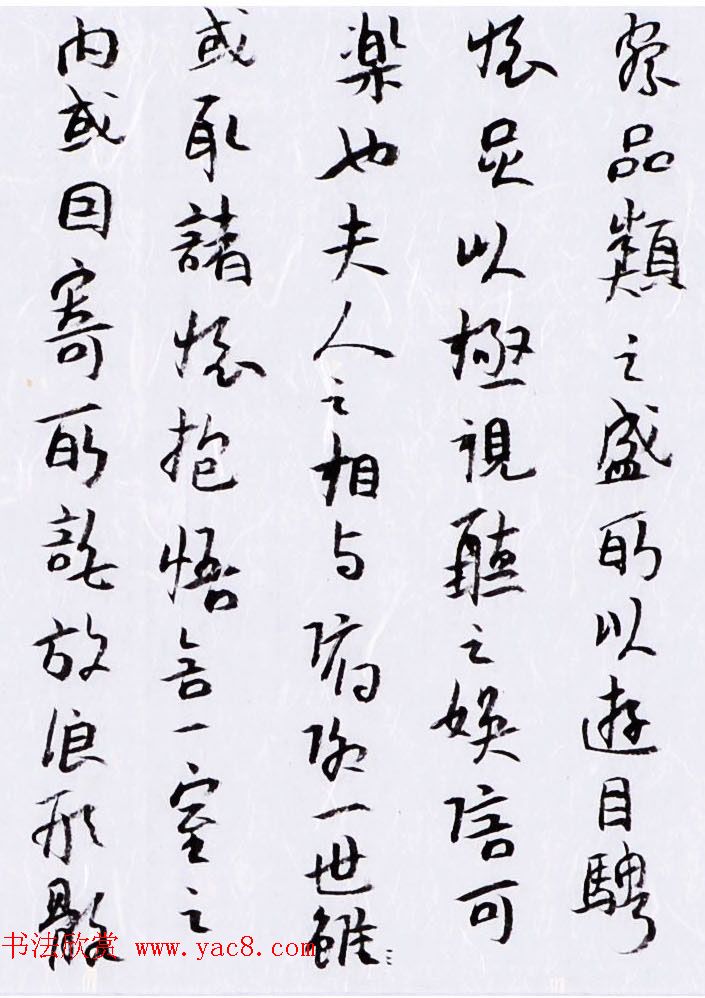 察品類之盛所以遊目騁
懷足以極視聽之娛信可
楽也夫人之相与俯仰一世雖
或取諸懷抱悟言一室之
内或因寄所託放浪形骸
书法欣赏 www.yac8.com